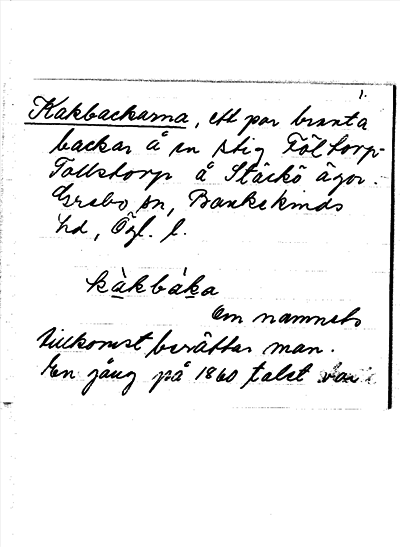 1.
Kakbackarna, ett par branta
backar å en stig Föltorp-
Tollstorp å Stäckö ägor.
Grebo sn, Bankekinds
hd, Ögl. l.
kàkbáka
Om namnets
tillkomst berättar man.
En gång på 1860 talet var